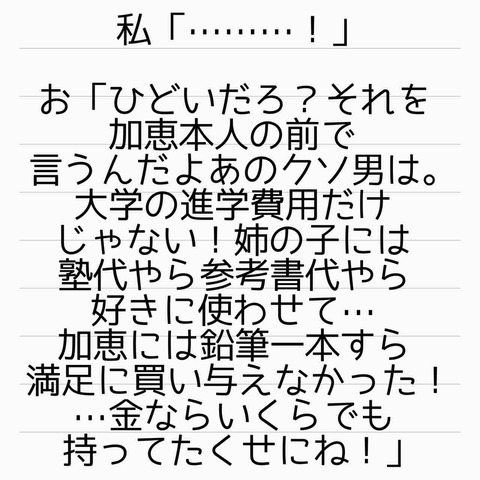 私「………！」
お「ひどいだろ？それを
加恵本人の前で
言うんだよあのクソ男は。
大学の進学費用だけ
じゃない！姉の子には
塾代やら参考書代やら
好きに使わせて…
加恵には鉛筆一本すら
満足に買い与えなかった！
…金ならいくらでも
持ってたくせにね！」